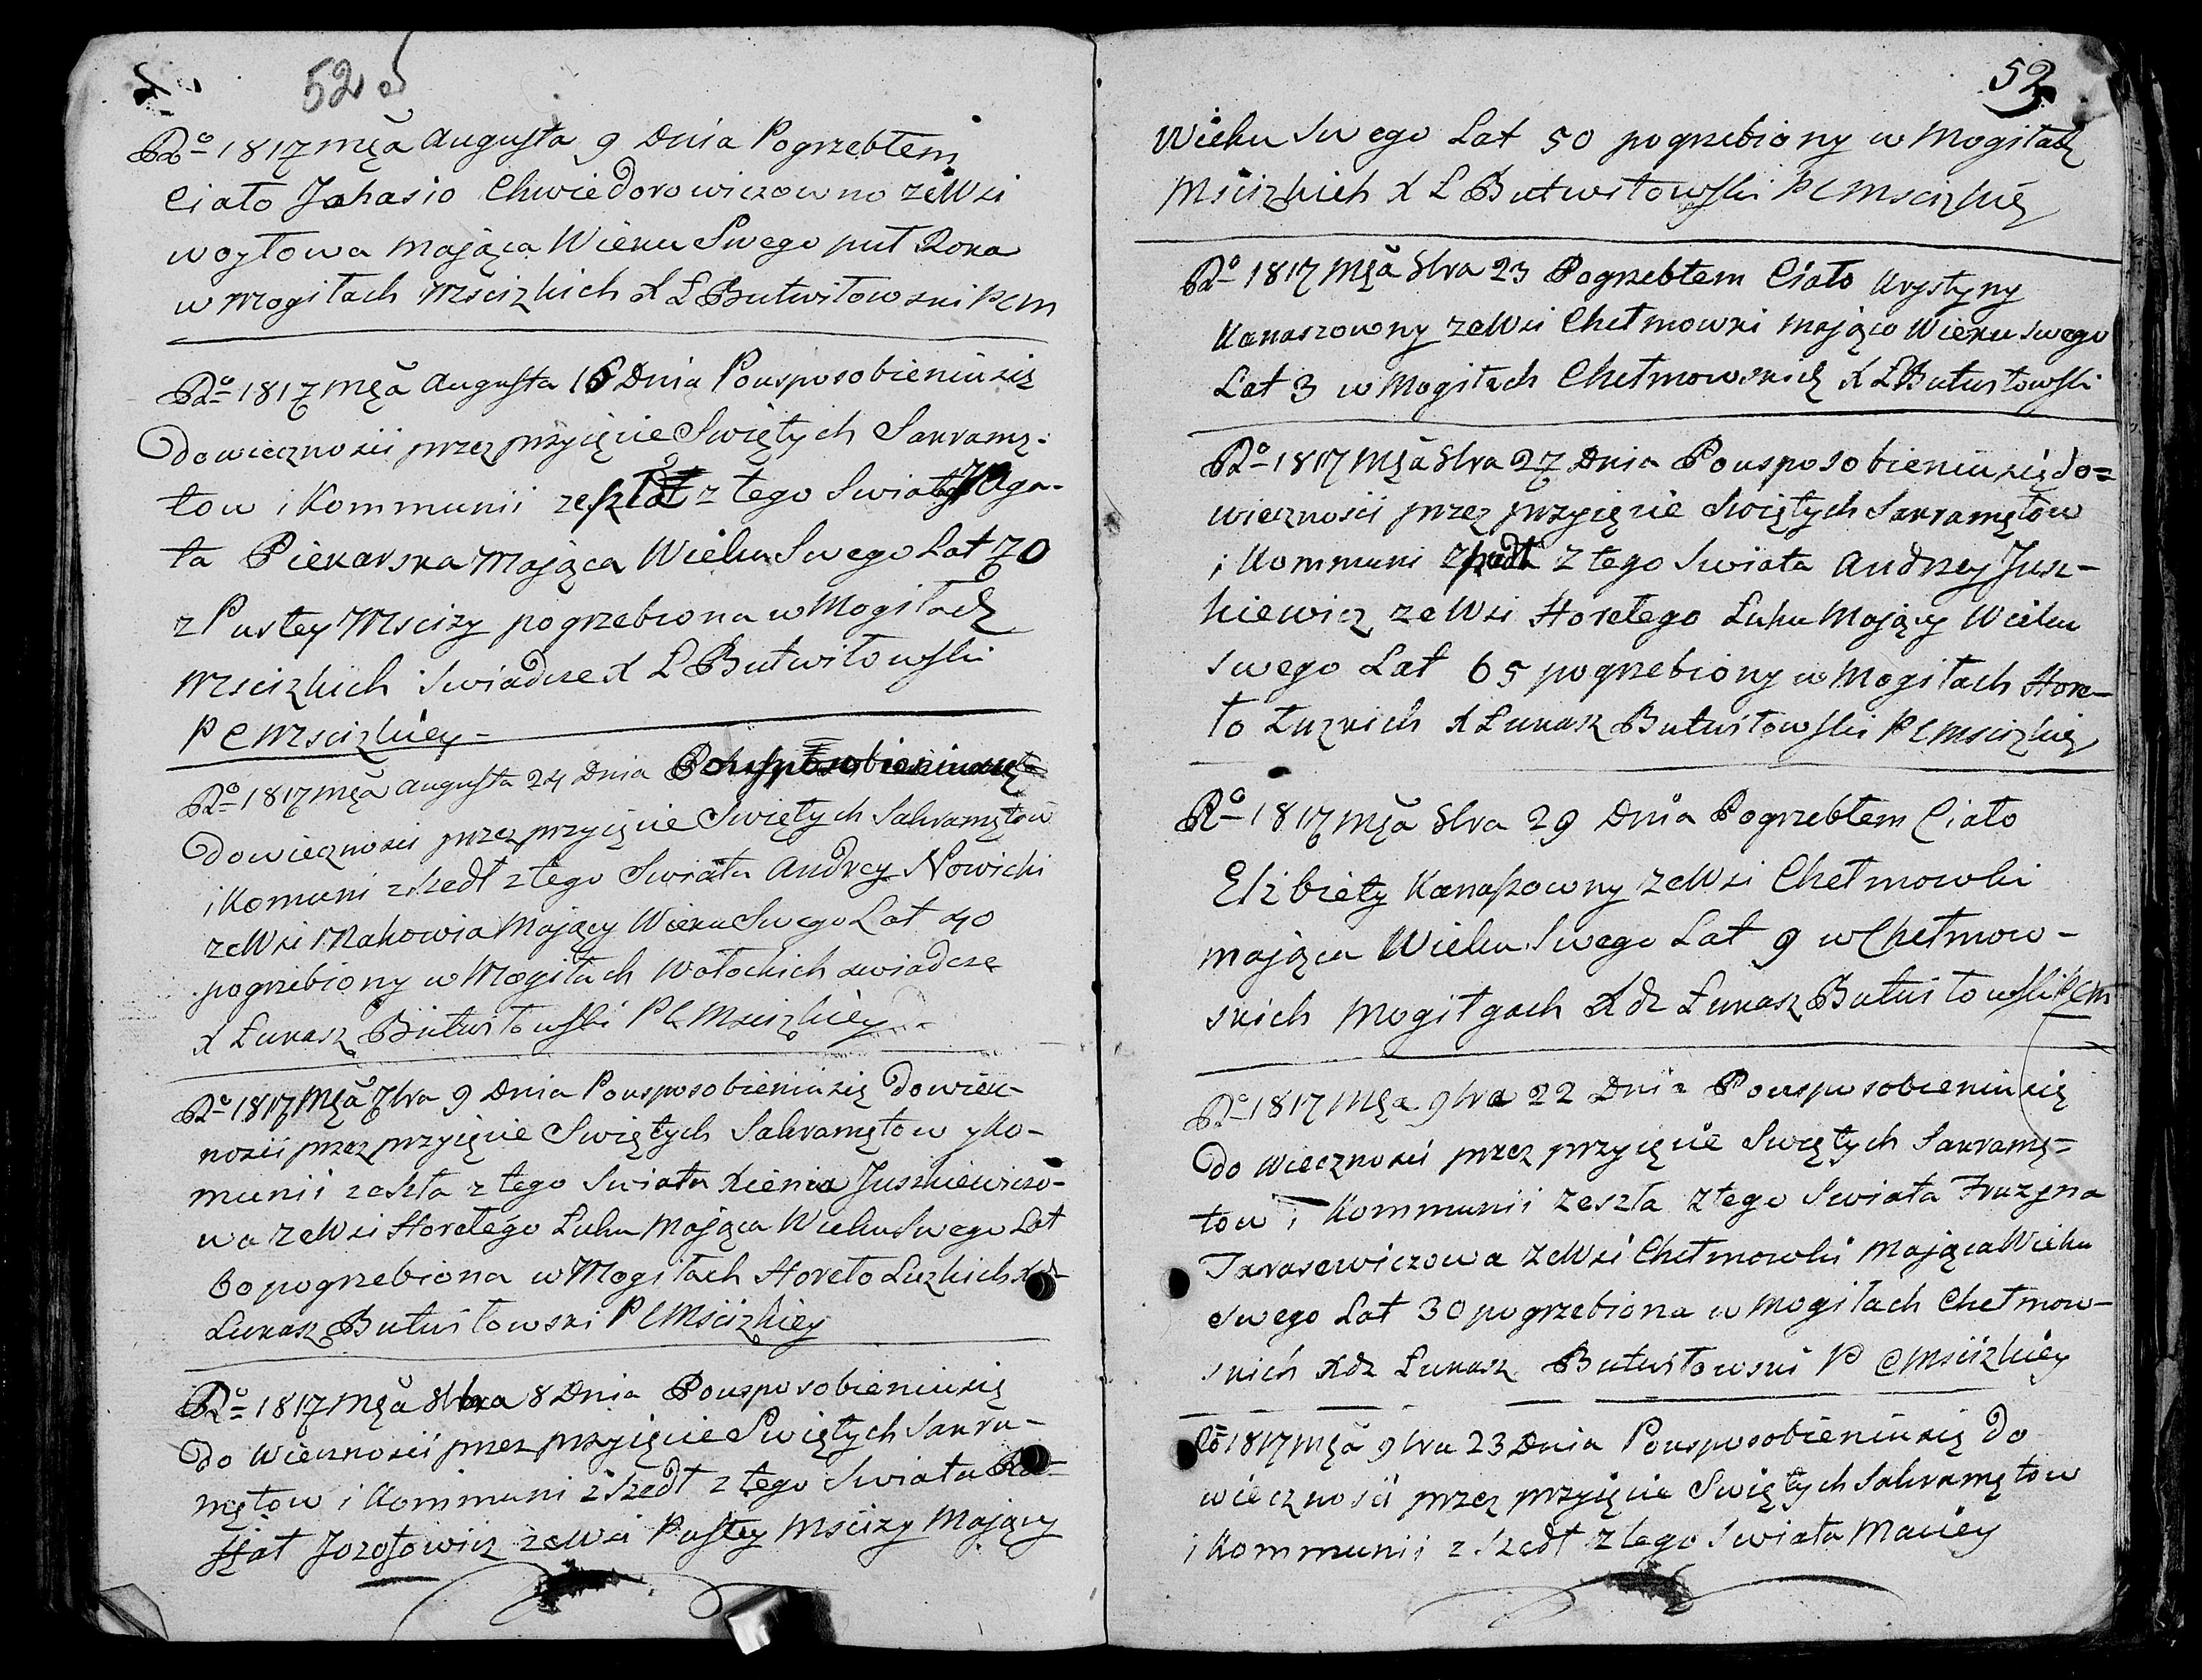 52 об
Rº 1817 mça Augusta 9 Dnia Pogrzebłem
Ciało Jahasio Chwiedorowiczowno zeWsi
woytowa mająca Wieku Swego puł Roka
w Mogiłach Mścizkich X Ł Butwiłowski P C M
Rº 1817 mça Augusta 16 Dnia Pousposobieniu się
do wiecznosii przez przyięcie Swiętych Sakramę-
tow i Kommunii zeszła z tego Swiata Aga-
ta Piekarska Mająca Wieku Swego Lat 70
z Pustey Mscizy pogrzebiona w Mogiłach
Mscizkich Swiadcze X Ł Butwiłowski
P C Mscizkiey -
Rº 1817 mça Augusta 24 Dnia Pousposobieniu się
do wiecznosci przez przyięcie Swiętych Sakramętow
i Komuni zszedł z tego Swiata Andrey Nowicki
zeWsi Makowia Mający Wieku Swego Lat 40
pogrzebiony w Mogiłach Wołockich swiadczę
X Łukasz Butwiłowski P C Mscizkiey
Rº 1817 Mça 7bra 9 Dnia Pousposobieniu się do wiecz-
nosii przez przyięcie Swiętych Sakramętow y Ko-
munii zeszła z tego Swiata Xienia Juszkiewiczo-
wa zeWsi Horełego Łuhu Mająca Wieku Swego Lat
60 pogrzebiona w Mogiłach Horeło Łuzkich
Łukasz Butwiłowski P C Mścizkiey
Rº 1817 Mça 8bra 8 Dnia Pousposobieniu się
do Wiecznosii przez przyięcie Swiętych Sakra-
mętow i Kommuni zszedł z tego Swiata
Jozofowicz zeWsi Pustey Mścizy Mający
52
Wieku Swego Lat 50 pogrzebiony w Mogiłach
Mścizkich X Ł Butwiłowski P C Mscizkiey
Rº 1817 Mça 8bra 23 Pogrzebłem Ciało Krystyny
Kanaszowny zeWsi Chełmowki mająco Wieku Swego
Lat 3 w Mogiłach Chełmowskich X Ł Butwiłowski
Rº 1817 Mça 8bra 27 Dnia Pousposobieniu się do=
wiecznosii przez przyięcie Swiętych Sakramętow
i Kommuni zszedł z tego Swiata Andrzey Jusz-
kiewicz zeWsi Horełego Łuhu Mający Wieku
swego Lat 65 pogrzebiony w Mogiłach Hore-
ło Łuzkich X Łukasz Butwiłowski P C Mscizkiey
Rº 1817 mça 8bra 29 Dnia Pogrzebłem Ciało
Elżbiety Kanaszowny zeWsi Chełmowki
mająca Wieku Swego Lat 9 w Chełmow-
skich Mogiłgach Xdz Łukasz Butwiłowski P C M
Rº 1817 Mça 9bra 22 Dnia Pousposobieniu się
do Wiecznosii przez przyięcie Swiętych Sakramę=
tow i Kommunii zeszła z tego Swiata Fruzyna
Tarasewiczowa zeWsi Chełmowki Mająca Wieku
Swego Lat 30 pogrzebiona w Mogiłach Chełmow-
skich Xdz Łukasz Butwiłowski P C Mścizkiey
Rº 1817 Mça 9bra 23 Dnia Pousposobieniu się do
wiecznosii przez przyięcie Swiętych Sakramętow
i Kommunii zszedł z tego Swiata Maciey